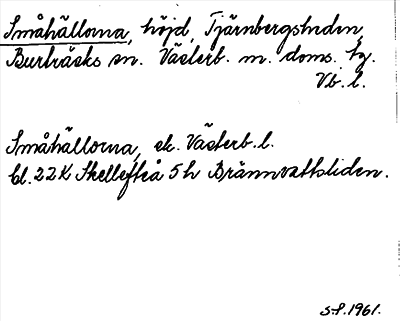 Småhällorna, höjd, Tjärnbergsheden,
Burträsks sn. Västerb. m. doms. tg.
Vb. l.
Småhällorna, ek. Västerb. l.
bl. 22K Skellefteå 5h Brännvattsliden.
S-P. 1961.